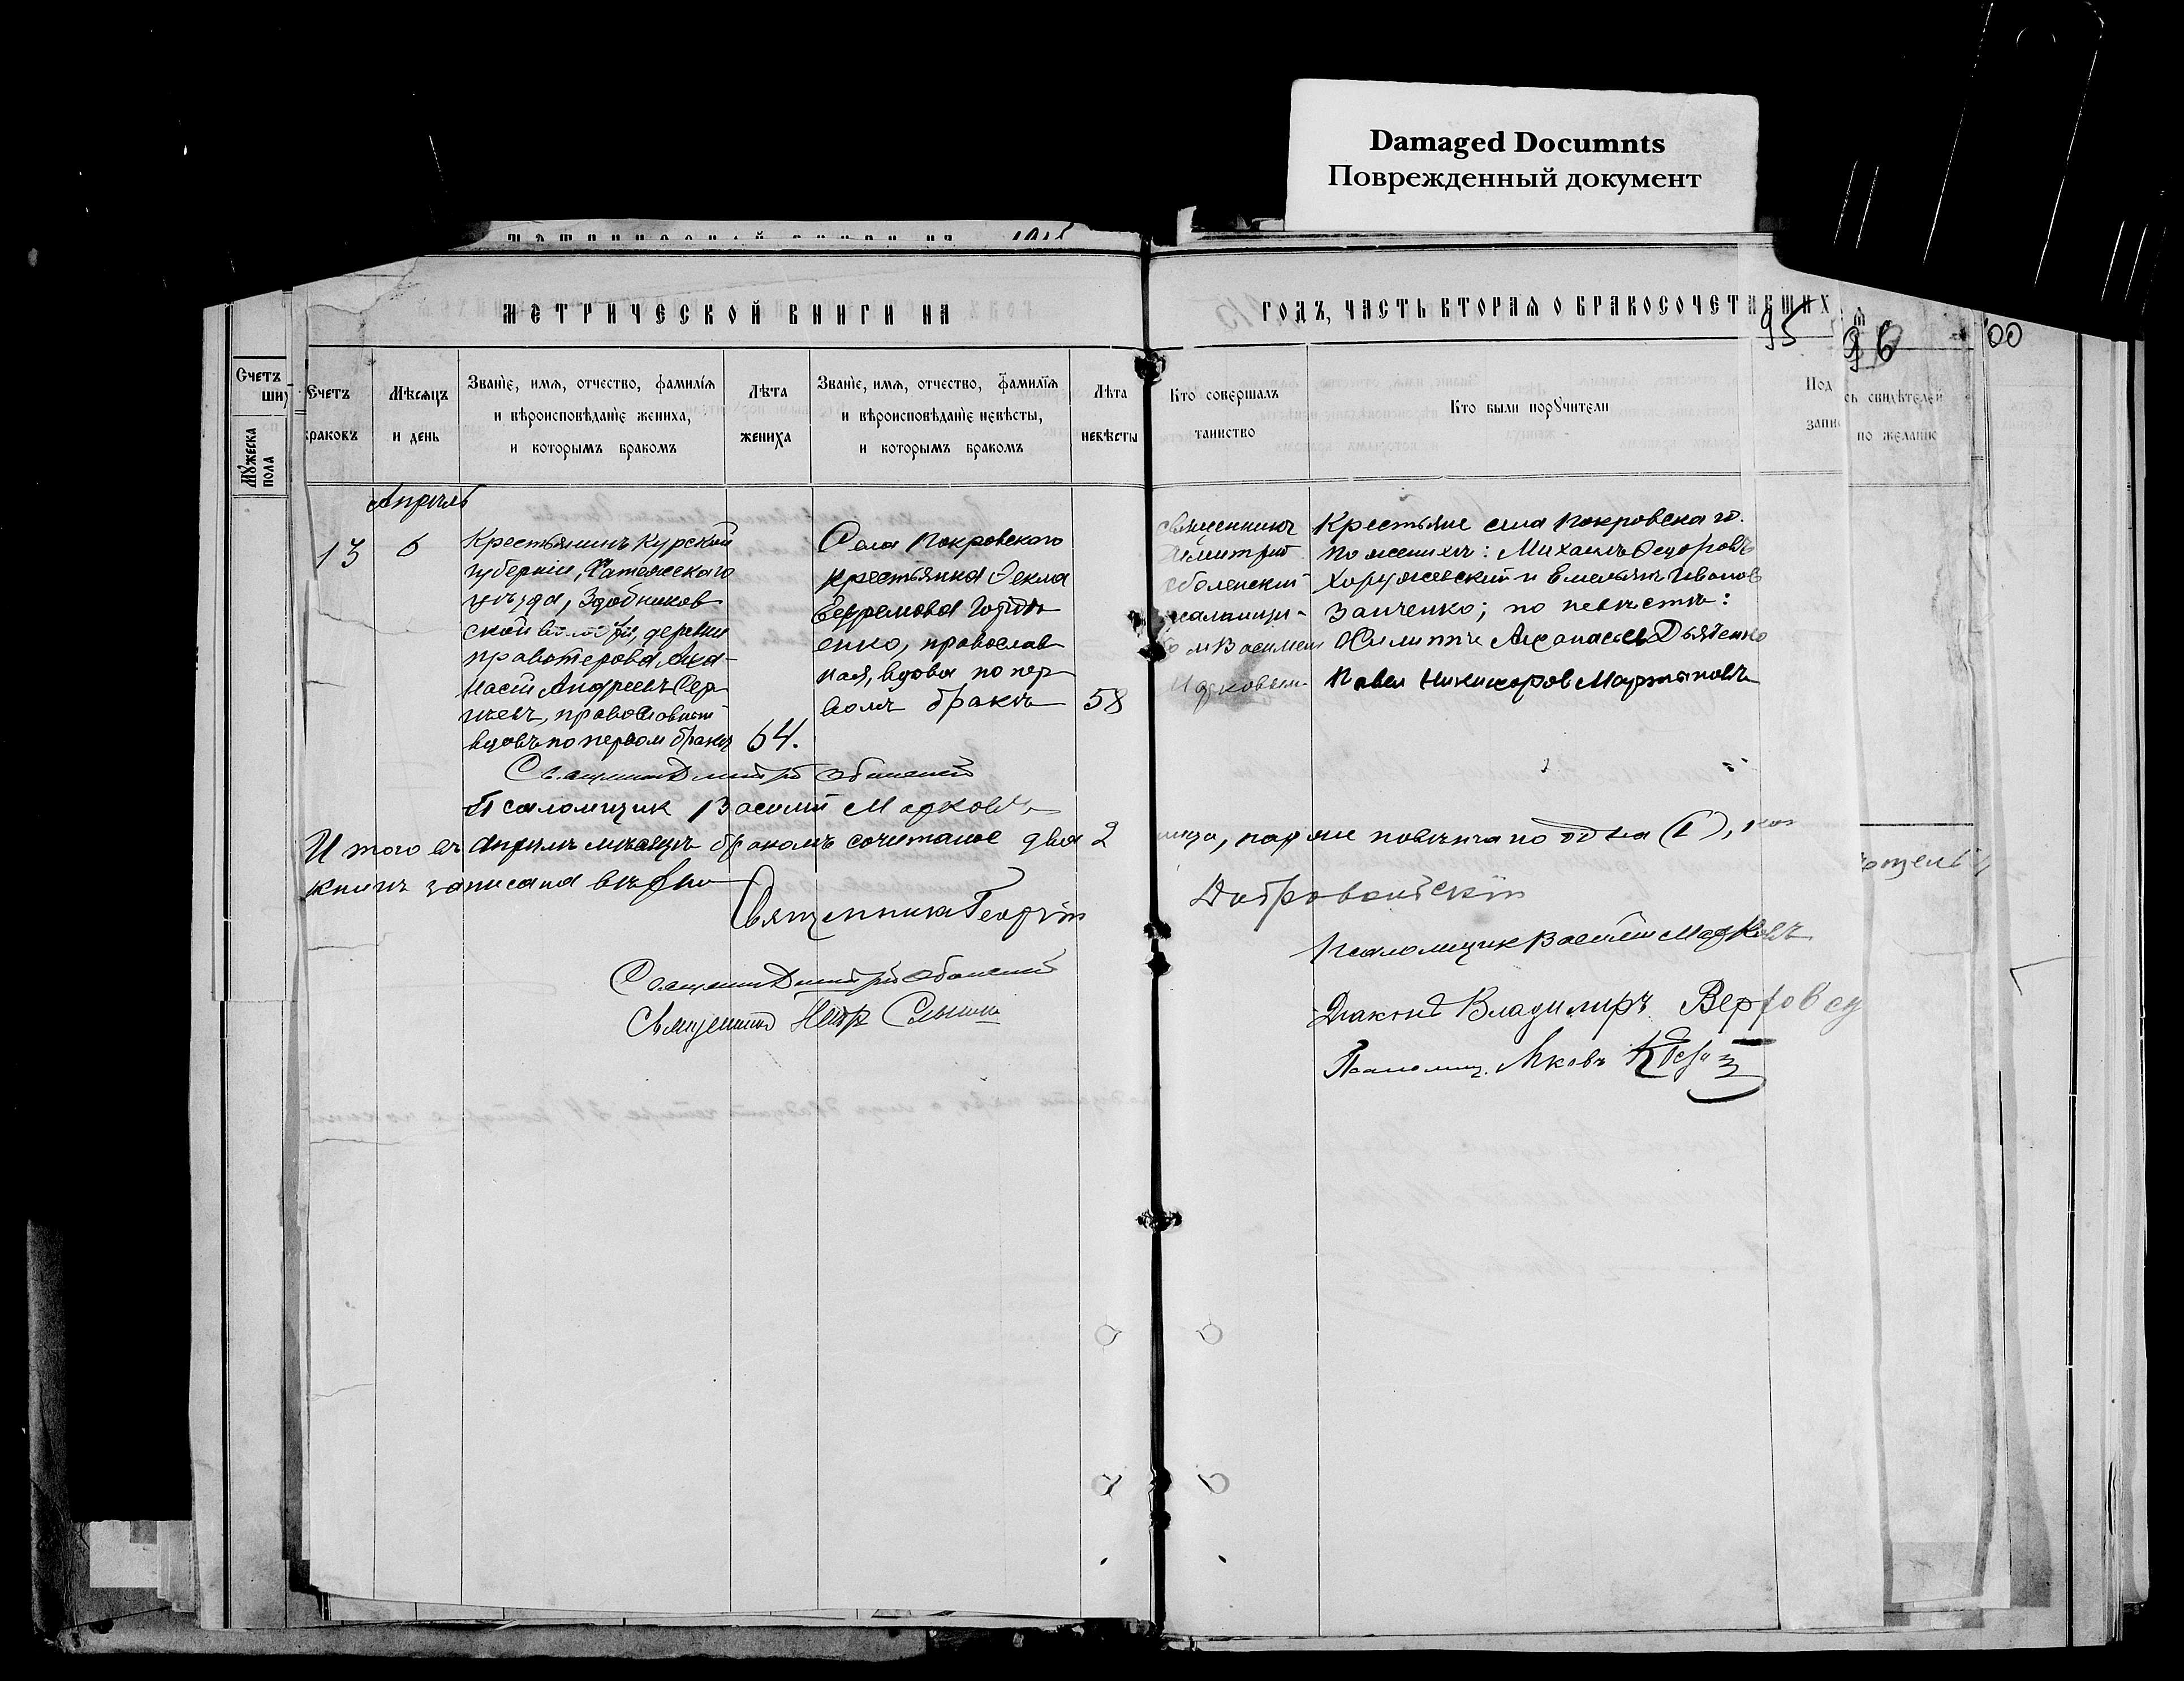 Damaged Documnts
Поврежденный документ
МЕТРИЧЕСКОЙ КНИГИ НА
ГОДЪ, ЧАСТЬ ВТОРАЯ О БРАКОСОЧЕТАВШИХ
95
96
00
Счетъ
Мужеска пола
Счетъ браковъ
Мѣсяцъ и день
Званіе, имя, отчество, фамилія и вѣроисповѣданіе жениха, и которымъ бракомъ
Лѣта жениха
Званіе, имя, отчество, фамилія и вѣроисповѣданіе невѣсты, и которымъ бракомъ
Лѣта невѣсты
Кто совершалъ таинство
Кто были поручители
Под
сь свидѣтелей
запи
по желанію
Апрѣль
13
6
Крестьянинъ Курской
губерніи, Фатежскаго
уѣзда,
ской волости, деревни
Аѳа-
насій Андреевъ Сер
гѣевъ, православный
вдовъ по первом бракѣ
64.
Села Покровскаго
крестьянка Ѳекла
Ефремова Гордi
енко, православ
ная, вдова по пер
вомъ бракѣ
58
Священникъ
Димитрій
Оболенскій
псаломщи-
ком Василiем
Крестьяне села Покровскаго.
По женихѣ: Михаилъ Ѳедоровъ
Хоружевскій и Емельянъ Иванов
Заиченко; по невѣстѣ:
Филиппъ Аѳанасьевъ Дьяченко
Павел Никифоров Мартыновъ
Священник Дмитрій Оболенскій
Псаломщик Василій Мадковъ
Итого въ Апрѣлѣ мѣсяцѣ бракомъ сочеталось два 2
лица, пар же повѣнчано одна (1),
книгѣ записана вѣрно
Священникъ Георгій
Добровольскій
Псаломщик Василій Мадковъ
Священник Дмитрій Оболенскій
Священникъ Петр
Діаконъ Владимиръ
Псаломщ. Яковъ